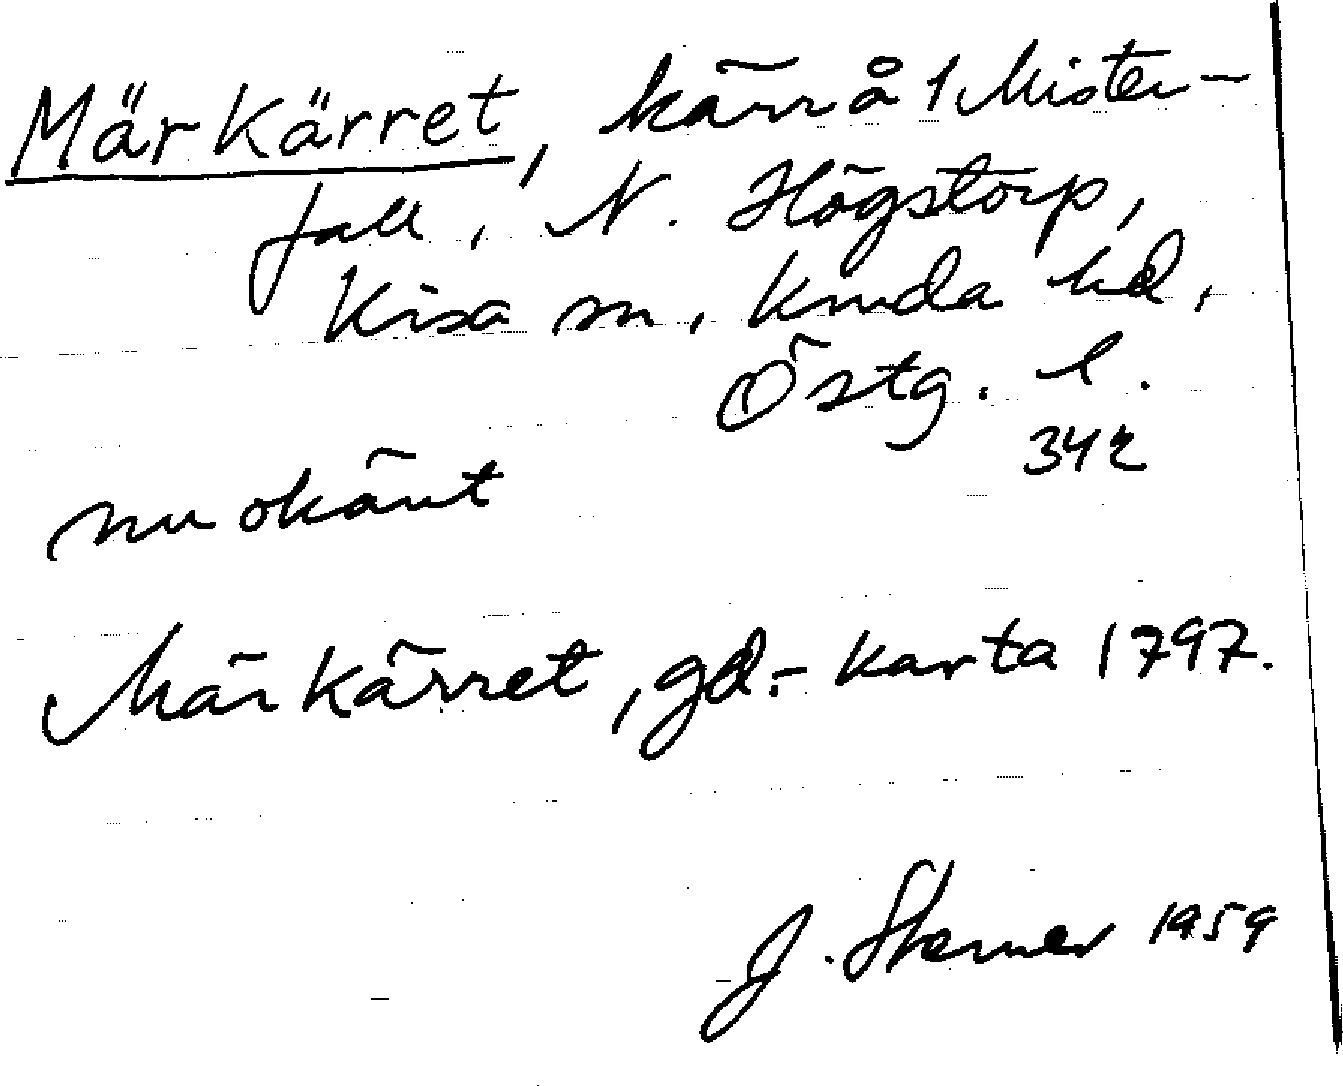 Märkärret, kärr å 1 Mister-
fall, N. Högstorp,
Kisa sn, Kinda hd,
Östg. l.
342
nu okänt
Märkärret, gd.- karta 1797.
J. 1959